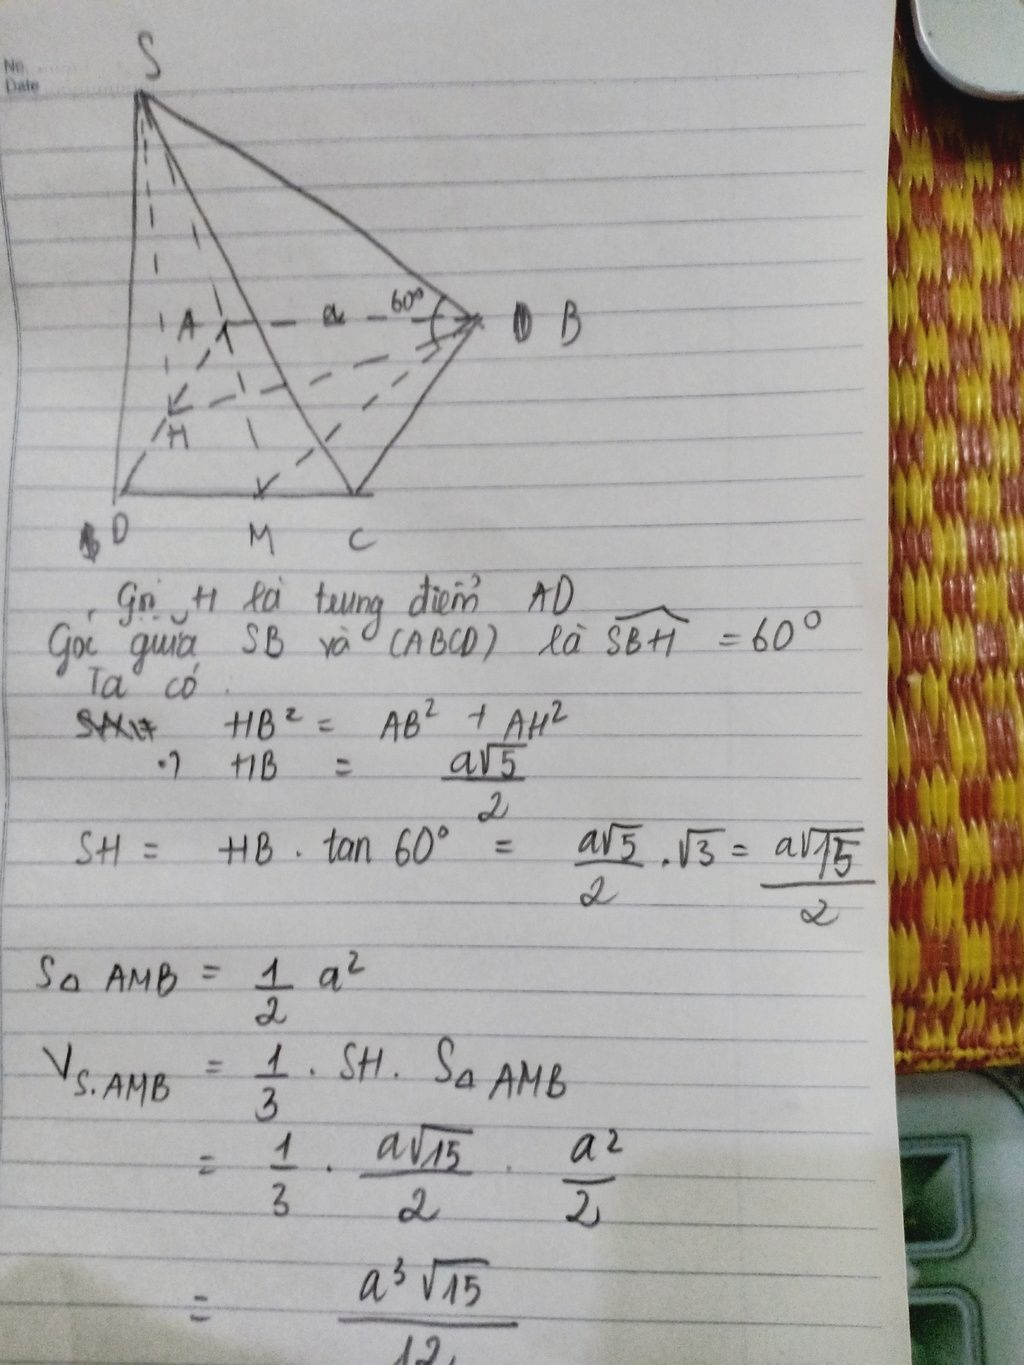 No.
Date
S
A a 60° B
H
D M C
Gọi H là trung điểm AD
Góc giữa SB và (ABCD) là SBH = 60°
Ta có
HB² = AB² + AH²
HB = a√5/2
SH = HB . tan 60° = a√5/2 . √3 = a√15/2
S△ AMB = 1/2 a²
V S.AMB = 1/3 . SH . S△ AMB
= 1/3 . a√15/2 . a²/2
= a³√15/12